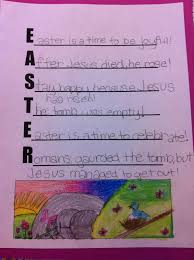 Easter is a time to be joyful!
After Jesus died, he rose!
Stay happy because Jesus
has risen!
The tomb was empty!
Easter is a time to celebrate.
Romans gaurded the tomb, but
Jesus managed to get out!